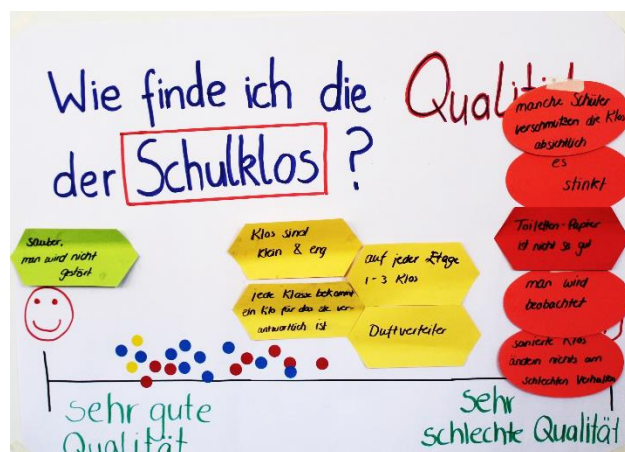 Wie finde ich die Qualität
der Schulklos ?
sauber,
man wird nicht
gestört
Klos sind
klein & eng
jede Klasse bekommt
ein Klo für das sie ver-
antwortlich ist
auf jeder Etage
1-3 Klos
Duftverteiler
manche Schüler
verschmutzen die Klos
absichtlich
es
stinkt
Toiletten-Papier
ist nicht so gut
man wird
beobachtet
sanierte Klos
ändern nichts am
schlechten Verhalten
sehr gute
Qualität
Sehr
schlechte Qualität